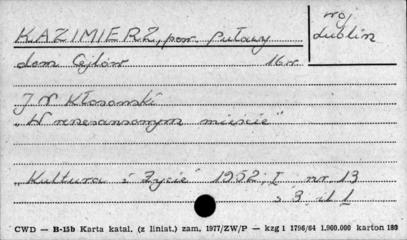 KAZIMIERZ, pow. Puławy
woj
Lublin
dom Cejlów 16 w.
J W Kłosowski
"W renesansowym mieście"
"Kultura i Życie" 1952, I nr. 13
s 3 il 1
CWD — B-15b Karta katal. (z liniat.) zam. 1977/ZW/P — kzg 1 1796/64 1.900.000 karton 180